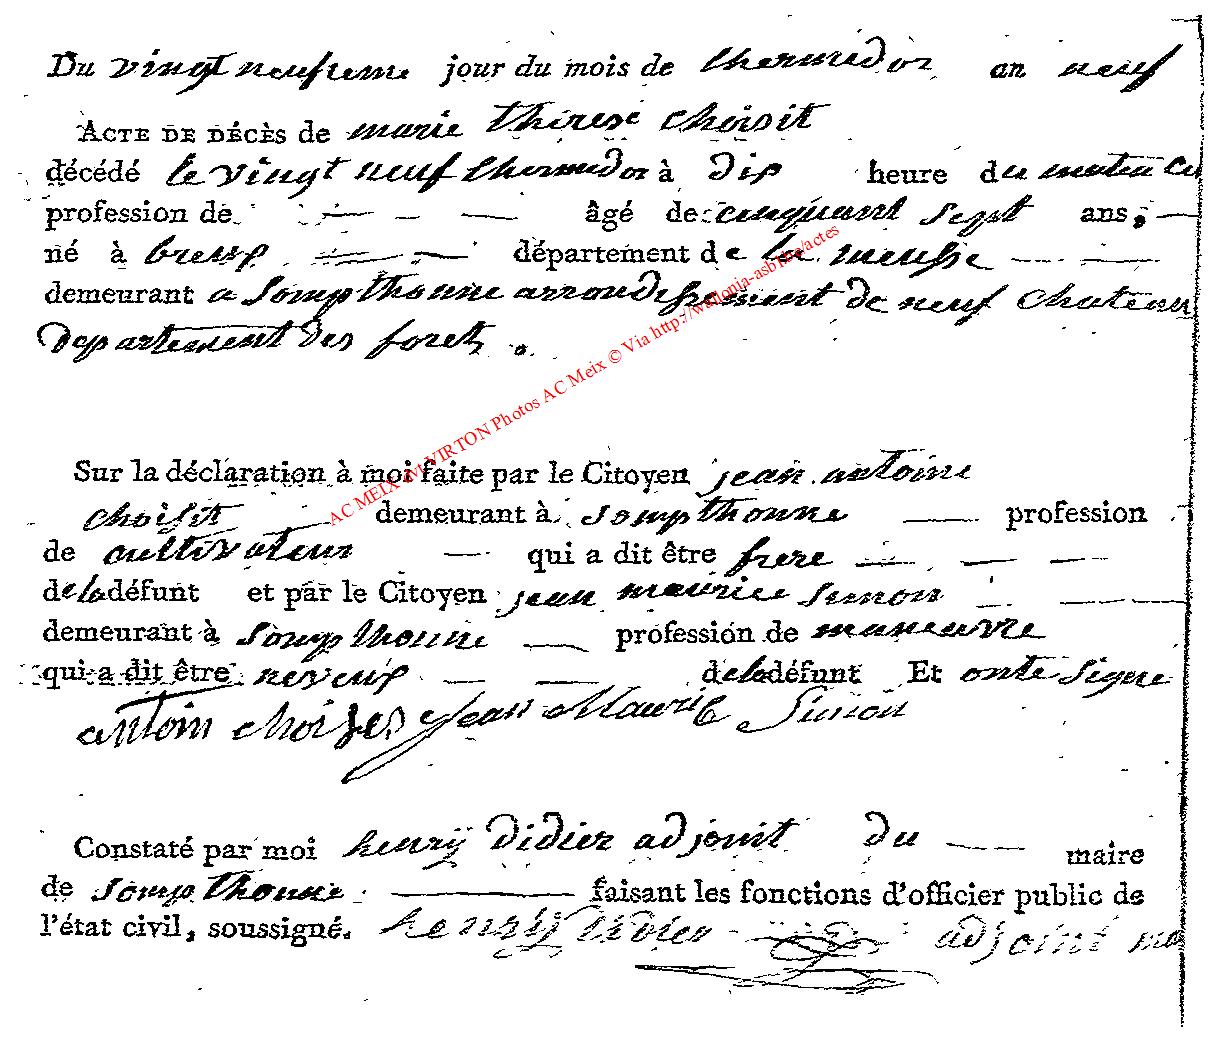 Du vingt neufieme jour du mois de thermidor an neuf
ACTE DE DÉCÈS de marie thérese choisit
décédé le vingt neuf thermidor à dix heure du matin
profession de — — — âgé de cinquant sept ans, —
né à breux — — département de la meusse — —
demeurant a sompthonne arrondissement de neuf chateau
departement des forets .
AC MEIX dvt VIRTON Photos AC Meix © Via http://wallonia-asbl.be/actes
Sur la déclaration à moi faite par le Citoyen jean antoine
choisit — demeurant à sompthonne — profession
de cultivateur — qui a dit être frere — — —
de la défunt et par le Citoyen jean maurice simon — —
demeurant à sompthonne — profession de maneuvre
qui a dit être neveux — — de la défunt Et ont signe
antoin choizes jean Mauric Simon
Constaté par moi henrÿ didier adjoint du — maire
de sompthonne — faisant les fonctions d'officier public de
l'état civil, soussigné. henrÿ didier adjoint